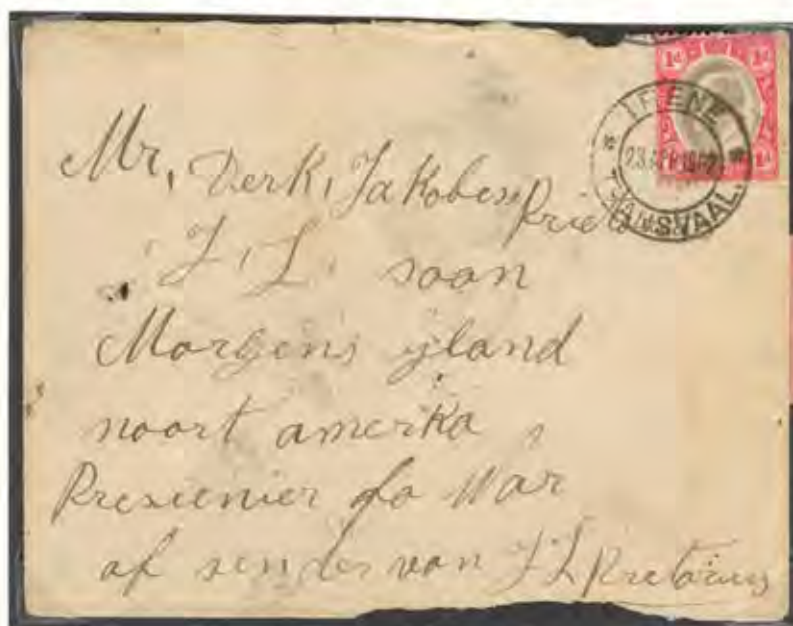 1d 1d
IRENE
23 APR 1902
TRANSVAAL.
Mr, Derk, Jakobes
J, L, soon
Morgens ijland
noort amerka
Presienier fo War
af sender van J L Pretorius